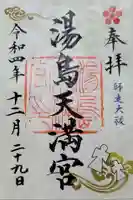 奉拝
師走大祓
湯島天満宮
令和四年十二月二十九日